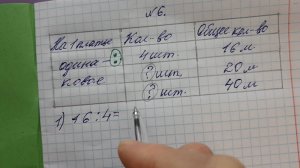 №6.
На 1 платье Кол-во Общее кол-во
одина- ? 4 шт. 16 м
ковое ? шт. 20 м
? шт. 40 м
1) 16:4=